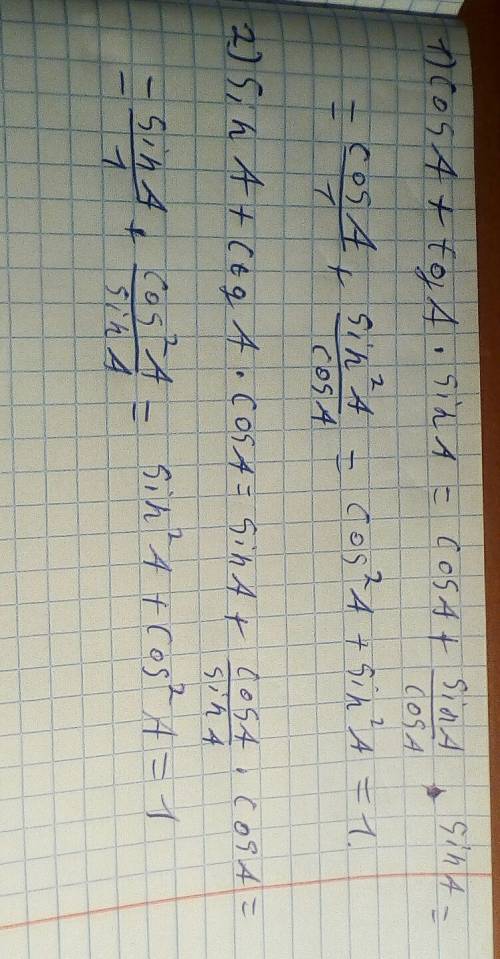 1) cosA + tgA · sinA = cosA + sinA/cosA · sinA =
= cosA/1 + sin²A/cosA = cos²A + sin²A = 1.
2) sinA + ctgA · cosA = sinA + cosA/sinA · cosA =
= sinA/1 + cos²A/sinA = sin²A + cos²A = 1